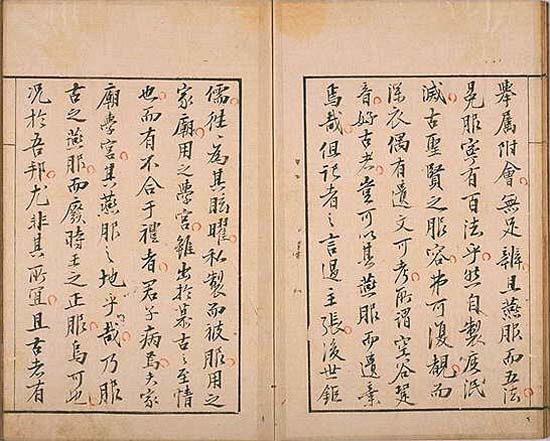 舉属附會無足辨且燕服而五法
冕服寧有百法乎然自製度泯
滅古聖賢之服容弗可復観而
深衣偶有遺文可考所謂空谷跫
音好古者豈可以其燕服而遺棄
焉哉但記者之言過主張後世鉅
儒往〻為其眩曜私製而被服用之
家廟用之學宮雖出於慕古之至情
也而有不合于禮者君子病焉夫家
廟學宮其燕服之地乎哉乃服
古之燕服而廢時王之正服烏可也
况於吾邦尤非其所宜且古者有